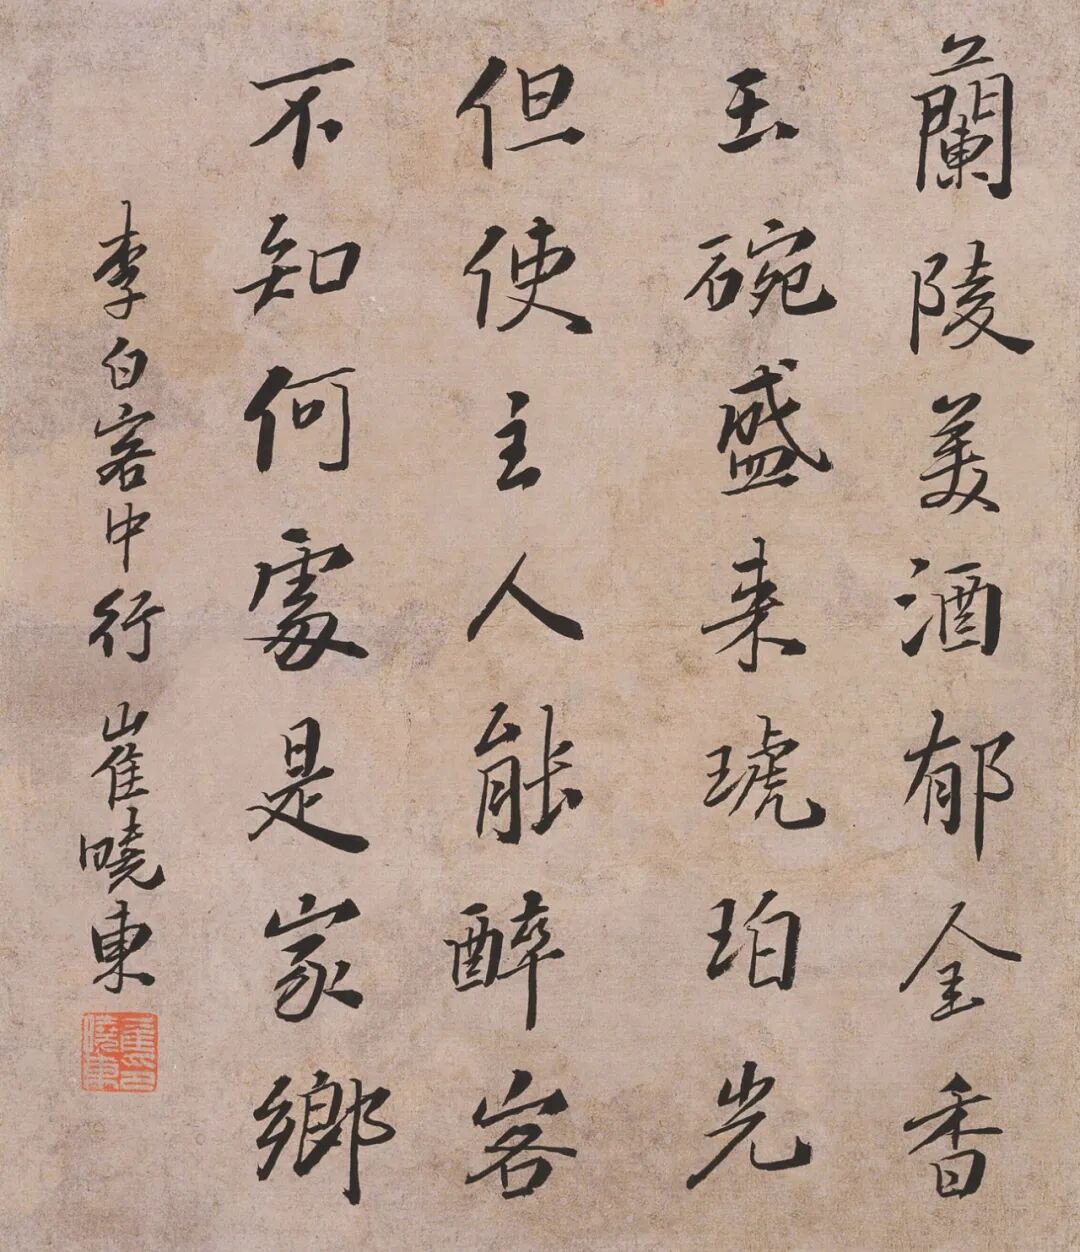 蘭陵美酒郁金香
玉碗盛来琥珀光
但使主人能醉客
不知何處是家鄉
李白客中行 崔曉東
崔印曉東